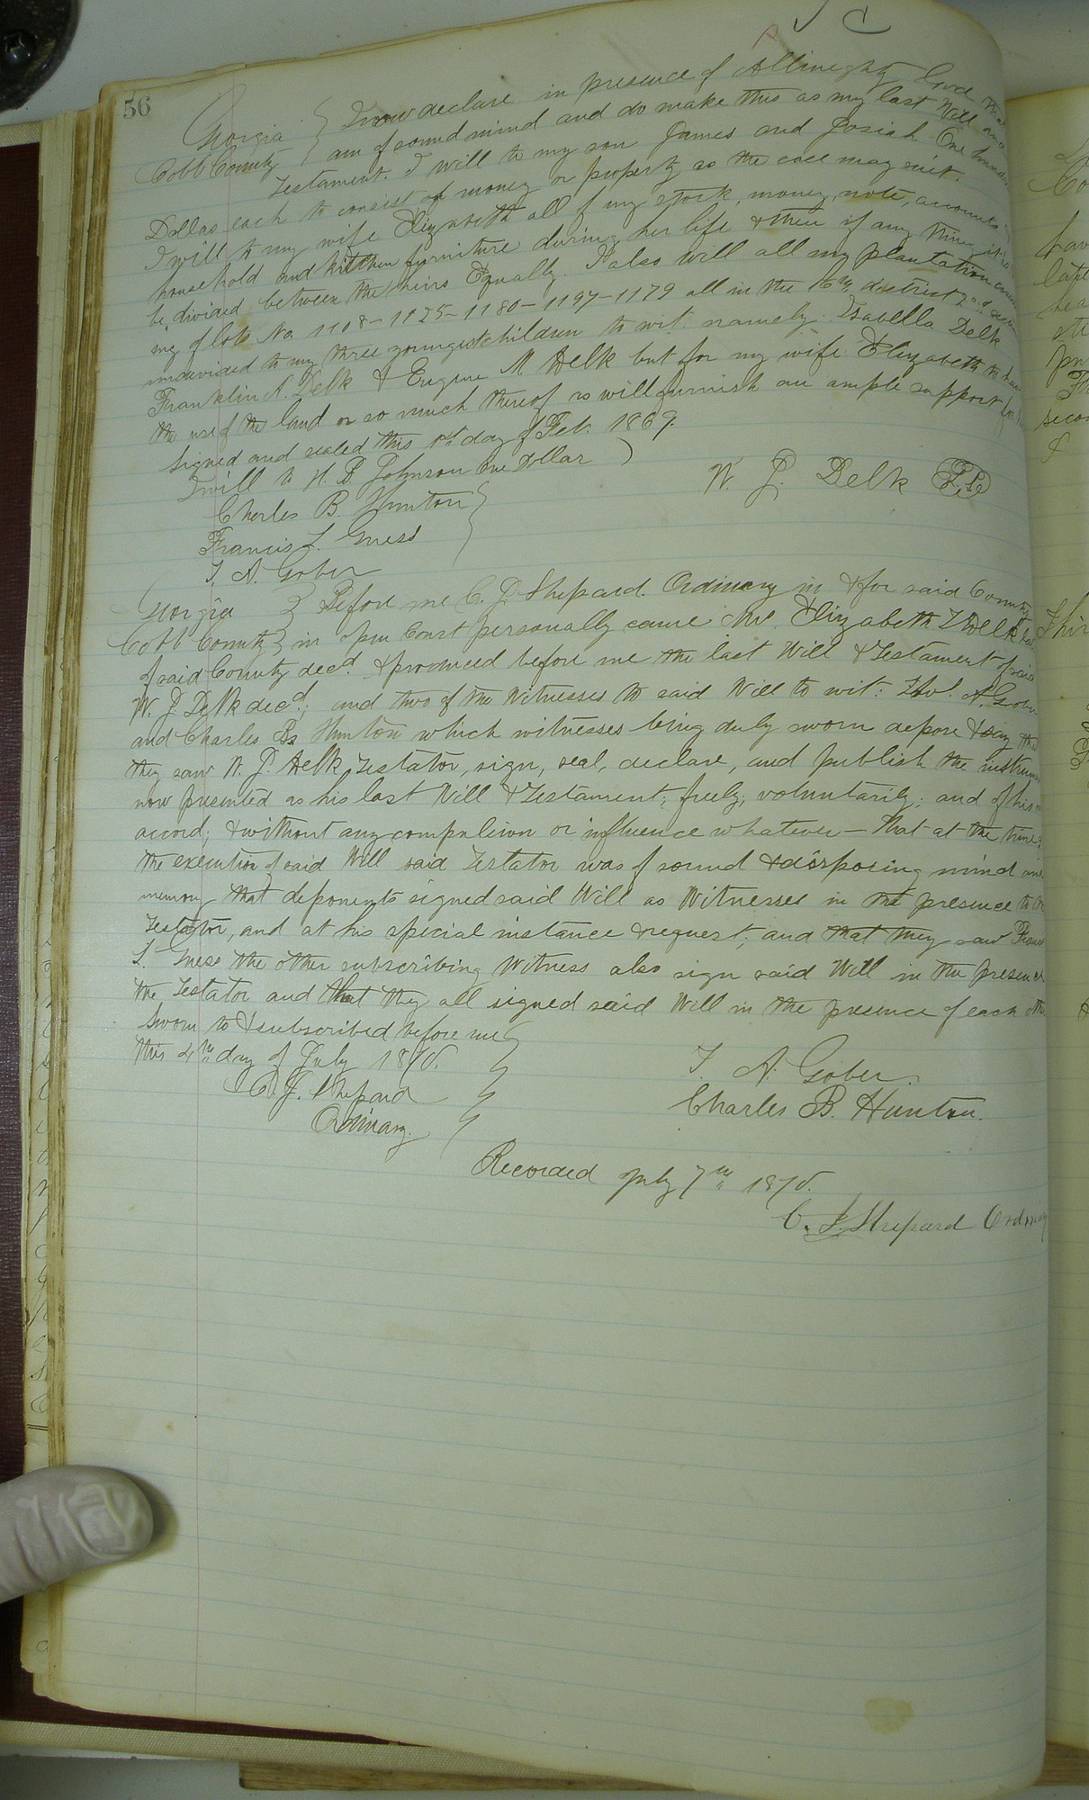 56
Georgia } I now declare in presence of Allmighty God that
Cobb County } am of sound mind and do make this as my last Will and
Testament. I will to my son James and Josiah One hundred
Dollas each to consist of money or property as the case may suit.
I will to my wife Elizabeth all of my stock, money, note, accounts
household and kitchen furniture during her life & then if any thing
be divided between the heirs Equally. I also will all my plantation
ing of lots No. 1108-1125-1180-1197-1179 all in the 16th district 2nd
undivided to my three youngest children to wit namely Isabella Delk
Franklin A. Delk & Eugene M Delk but for my wife Elizabeth to have
the use of the land or so much thereof as will furnish an ample support
Signed and sealed this 1st day of Feb. 1869.
I will to H. B Johnson One Dollar )
W. J. Delk L.S.
Charles B. Hunton }
Francis L. Guess
T. A. Gober
Georgia } Before me C. J. Shepard Ordinary in & for said County
Cobb County } in open Court personally came Mrs. Elizabeth Delk
of said County decd. & produced before me the last Will & Testament of said
W. J Delk decd; and two of the Witnesses to said Will to wit: A. Gober
and Charles B. Hunton which witnesses being duly sworn depose & say that
they saw W. J. Delk, Testator, sign, seal, declare, and publish the instrument
now presented as his last Will & Testament; freely, voluntarily; and of his
accord; & without any compulsion or influence whatever - that at the time
the execution of said Will said Testator was of sound & disposing mind and
memory that deponents signed said Will as Witnesses in the presence
Testator, and at his special instance & request; and that they saw
L. Guess the other subscribing Witness also sign said Will in the presence
the Testator and that they all signed said Will in the presence of each other
Sworn to & subscribed before me
this 4th day of July 1870.
T. A. Gober.
C. J. Shepard
Charles B. Hunton.
Ordinary.
Recorded July 7th 1870.
C. J. Shepard Ordinary